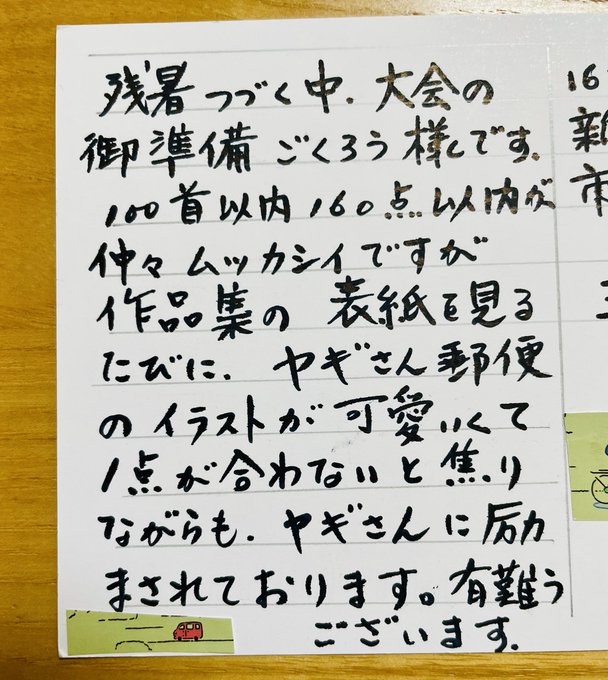 残暑つづく中、大会の
御準備ごくろう様です。
100首以内160点以内が
仲々ムツカシイですが
作品集の表紙を見る
たびに、ヤギさん郵便
のイラストが可愛いくて
1点が合わないと焦り
ながらも、ヤギさんに励
まされております。有難う
ございます。
16
新
市